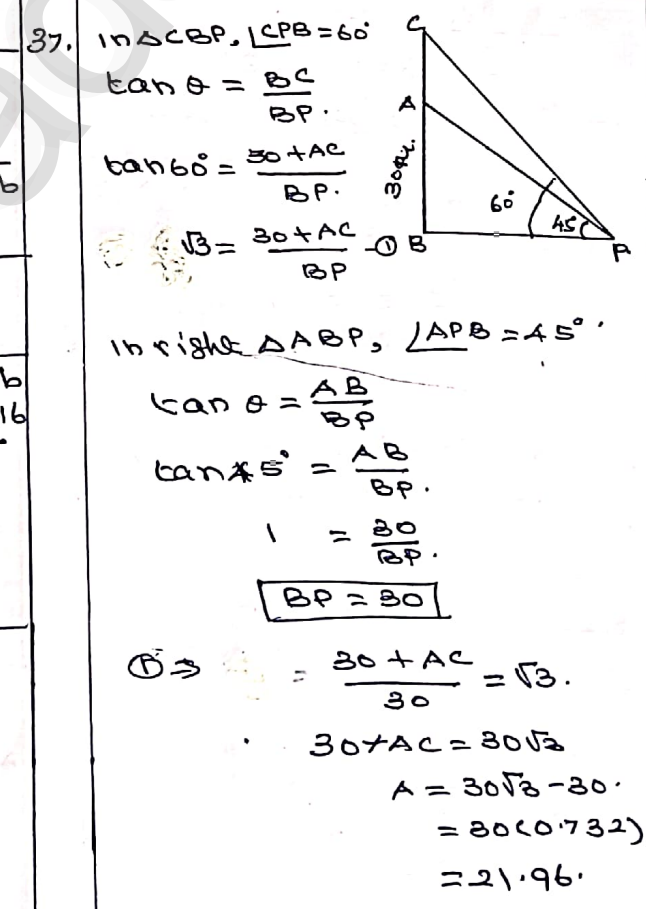 37. In △CBP, ∠CPB = 60°
tan θ = BC/BP.
tan 60° = 30 + AC/BP.
√3 = 30 + AC/BP -①
C
A
30m.
60°
45
B
P
In right △ABP, ∠APB = 45°.
tan θ = AB/BP
tan 45° = AB/BP.
1 = 30/BP.
BP = 30
① ⇒ = 30 + AC/30 = √3.
30 + AC = 30√3
A = 30√3 - 30.
= 30(0.732)
= 21.96.
b
b
16